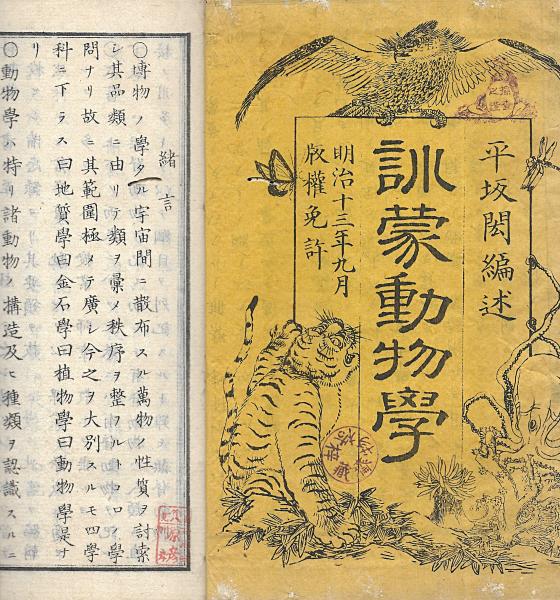 平坂閎編述
訓蒙動物學
明治十三年九月
版權免許
緒言
○博物ノ學タル宇宙間ニ散布スル萬物ノ性質ヲ討索
シ其品類ニ由リテ類ヲ彙メ秩序ヲ整フルトコロノ學
問ナリ故ニ其範圍極メテ廣シ今之ヲ大別スルモ四學
科ニ下ラス曰地質學曰金石學曰植物學曰動物學是ナ
リ
○動物學ハ特ニ諸動物ノ構造及ヒ種類ヲ認識スルニ